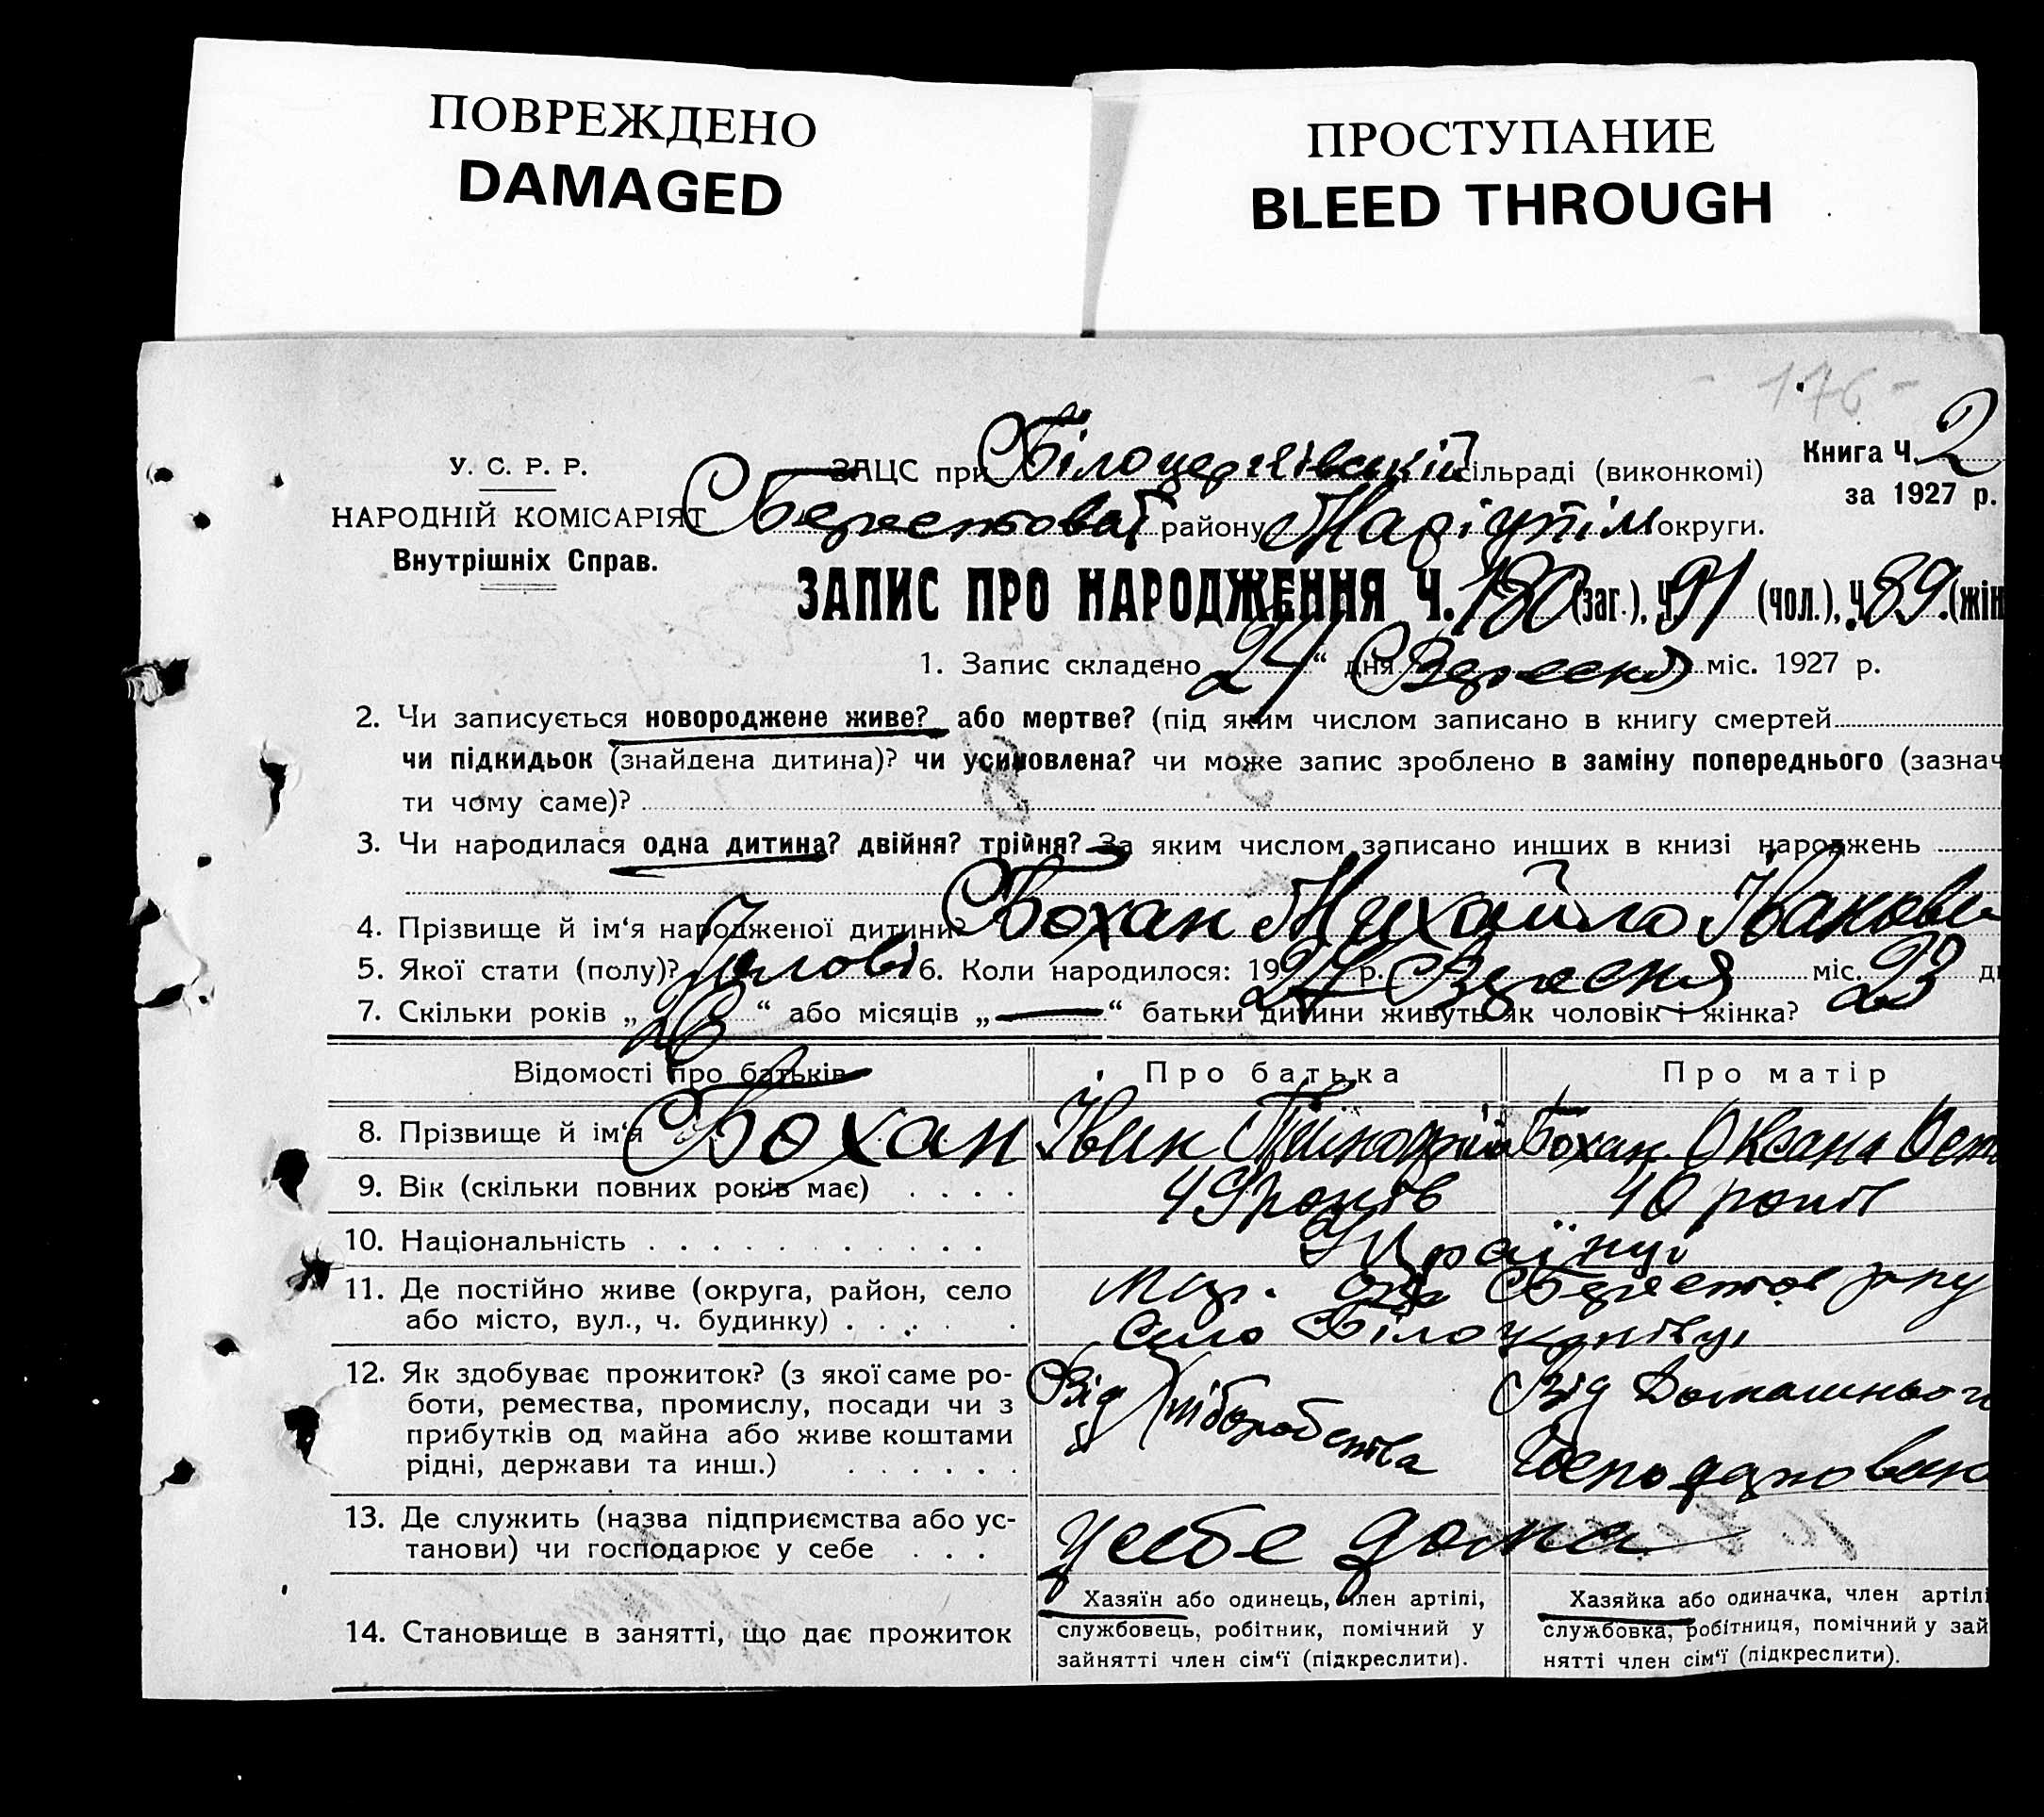 ПОВРЕЖДЕНО
DAMAGED
ПРОСТУПАНИЕ
BLEED THROUGH
- 176 -
Книга Ч. 2
за 1927 р.
У. С. Р. Р.
НАРОДНІЙ КОМІСАРІЯТ
Внутрішніх Справ.
ЗАЦС при Білоцерківській сільраді (виконкомі)
району Маріупіл округи.
ЗАПИС ПРО НАРОДЖЕННЯ Ч. 180 (заг.), Ч. 91 (чол.), Ч. 89. (жін
1. Запис складено 24 " дня Вересня міс. 1927 р.
2. Чи записується новороджене живе? або мертве? (під яким числом записано в книгу смертей
чи підкидьок (знайдена дитина)? чи усиновлена? чи може запис зроблено в заміну попереднього (зазнач
ти чому саме)?
3. Чи народилася одна дитина? двійня? трійня? За яким числом записано инших в книзі народжень
4. Прізвище й ім'я народженої дитини? Бохан Михайло Іванови
5. Якої стати (полу)? Чолові 6. Коли народилося: 1927 р. Вересня міс. 23 д
7. Скільки років „ " або місяців „ — " батьки дитини живуть як чоловік і жінка?
Відомості про батьків
Про батька
Про матір
8. Прізвище й ім'я Бохан Іван Бохан Оксана
9. Вік (скільки повних років має) . . . . 49 років 40 років
10. Національність . . . . . . . . . . . Українці
11. Де постійно живе (округа, район, село
або місто, вул., ч. будинку) . . . . .
Мар. окр Берестов р-ну
село Білоцерківці
12. Як здобуває прожиток? (з якої саме ро-
боти, ремества, промислу, посади чи з
прибутків од майна або живе коштами
рідні, держави та инш.) . . . . . .
Від хліборобства
Від Домашнього
13. Де служить (назва підприємства або ус-
танови) чи господарює у себе . . .
у себе дома
14. Становище в занятті, що дає прожиток
Хазяїн або одинець, член артілі,
службовець, робітник, помічний у
зайнятті член сім'ї (підкреслити).
Хазяйка або одиначка, член артілі
службовка, робітниця, помічний у зай
нятті член сім'ї (підкреслити).